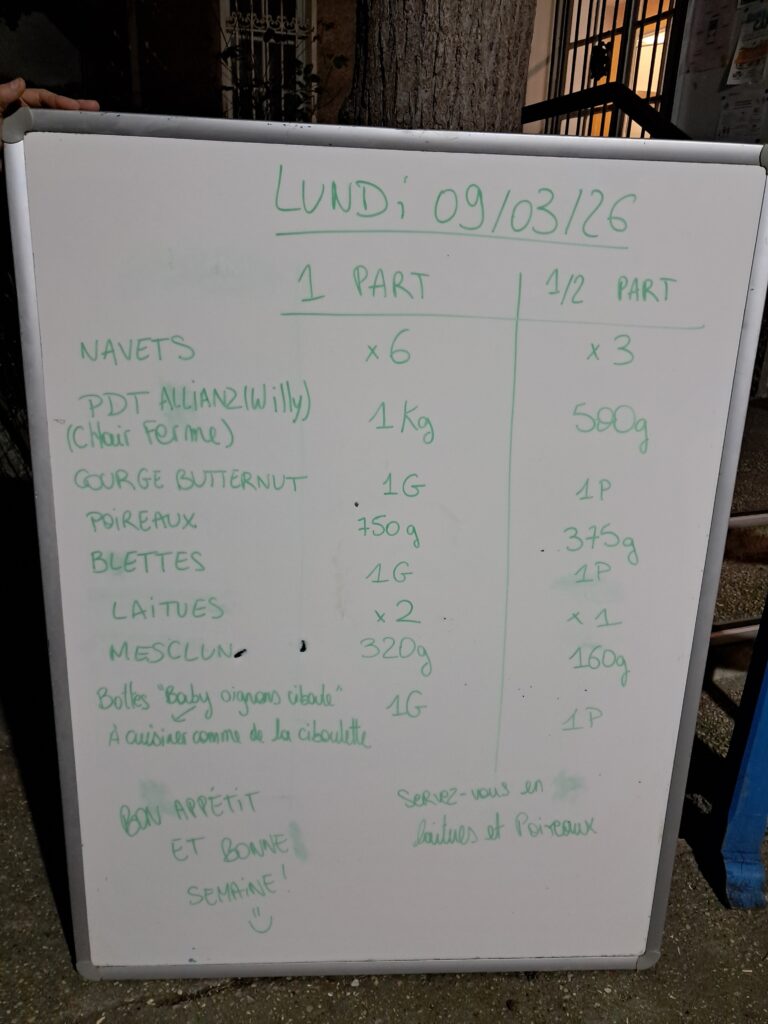 LUNDi 09/03/26
1 PART 1/2 PART
NAVETS x6 x3
PDT ALLIANZ (Willy)
(CHair Ferme) 1Kg 500g
COURGE BUTTERNUT 1G 1P
POIREAUX 750g 375g
BLETTES 1G 1P
LAiTUES x2 x1
MESCLUN 320g 160g
Bottes "Baby oignons ciboule" 1G 1P
À cuisiner comme de la ciboulette
BON APPÉTiT
ET BONNE
SEMAiNE!
Servez-vous en
laitues et Poireaux